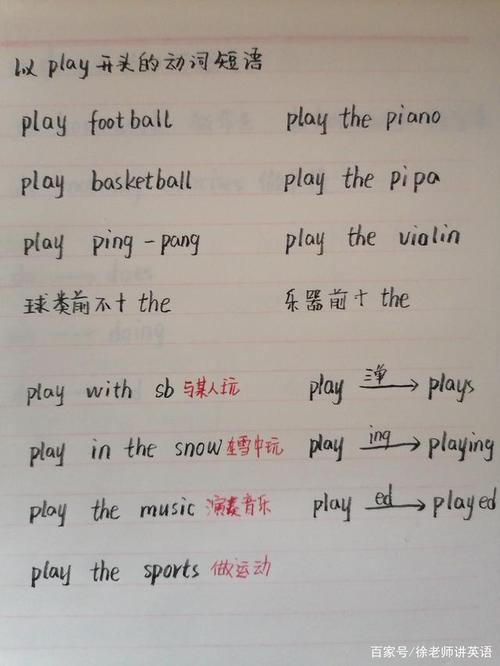 以 play 开头的动词短语
play football play the piano
play basketball play the pipa
play ping-pang play the violin
球类前不+ the 乐器前+ the
play with sb 与某人玩 play 三单→ plays
play in the snow 在雪中玩 play ing→ playing
play the music 演奏音乐 play ed→ played
play the sports 做运动
百家号/徐老师讲英语